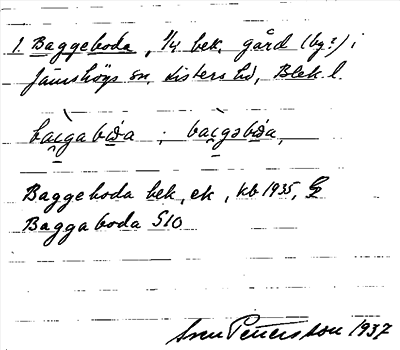 1. Baggeboda, 1/4 bek. gård (by?) i
Jämshögs sn, Listers hd, Blek. l.
Baggeboda bek, ek, kb 1935, G
Baggaboda S10
Sven Petersson 1937